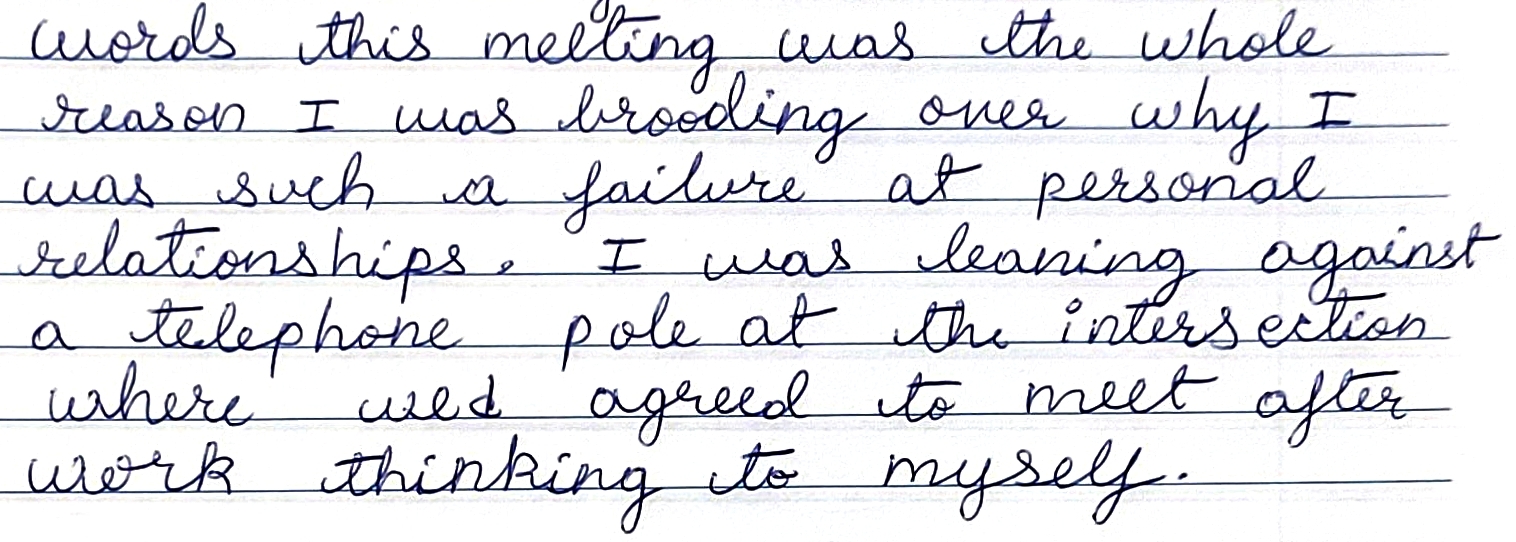 words this meeting was the whole
reason I was brooding over why I
was such a failure at personal
relationships. I was leaning against
a telephone pole at the intersection
where wed agreed to meet after
work thinking to myself.